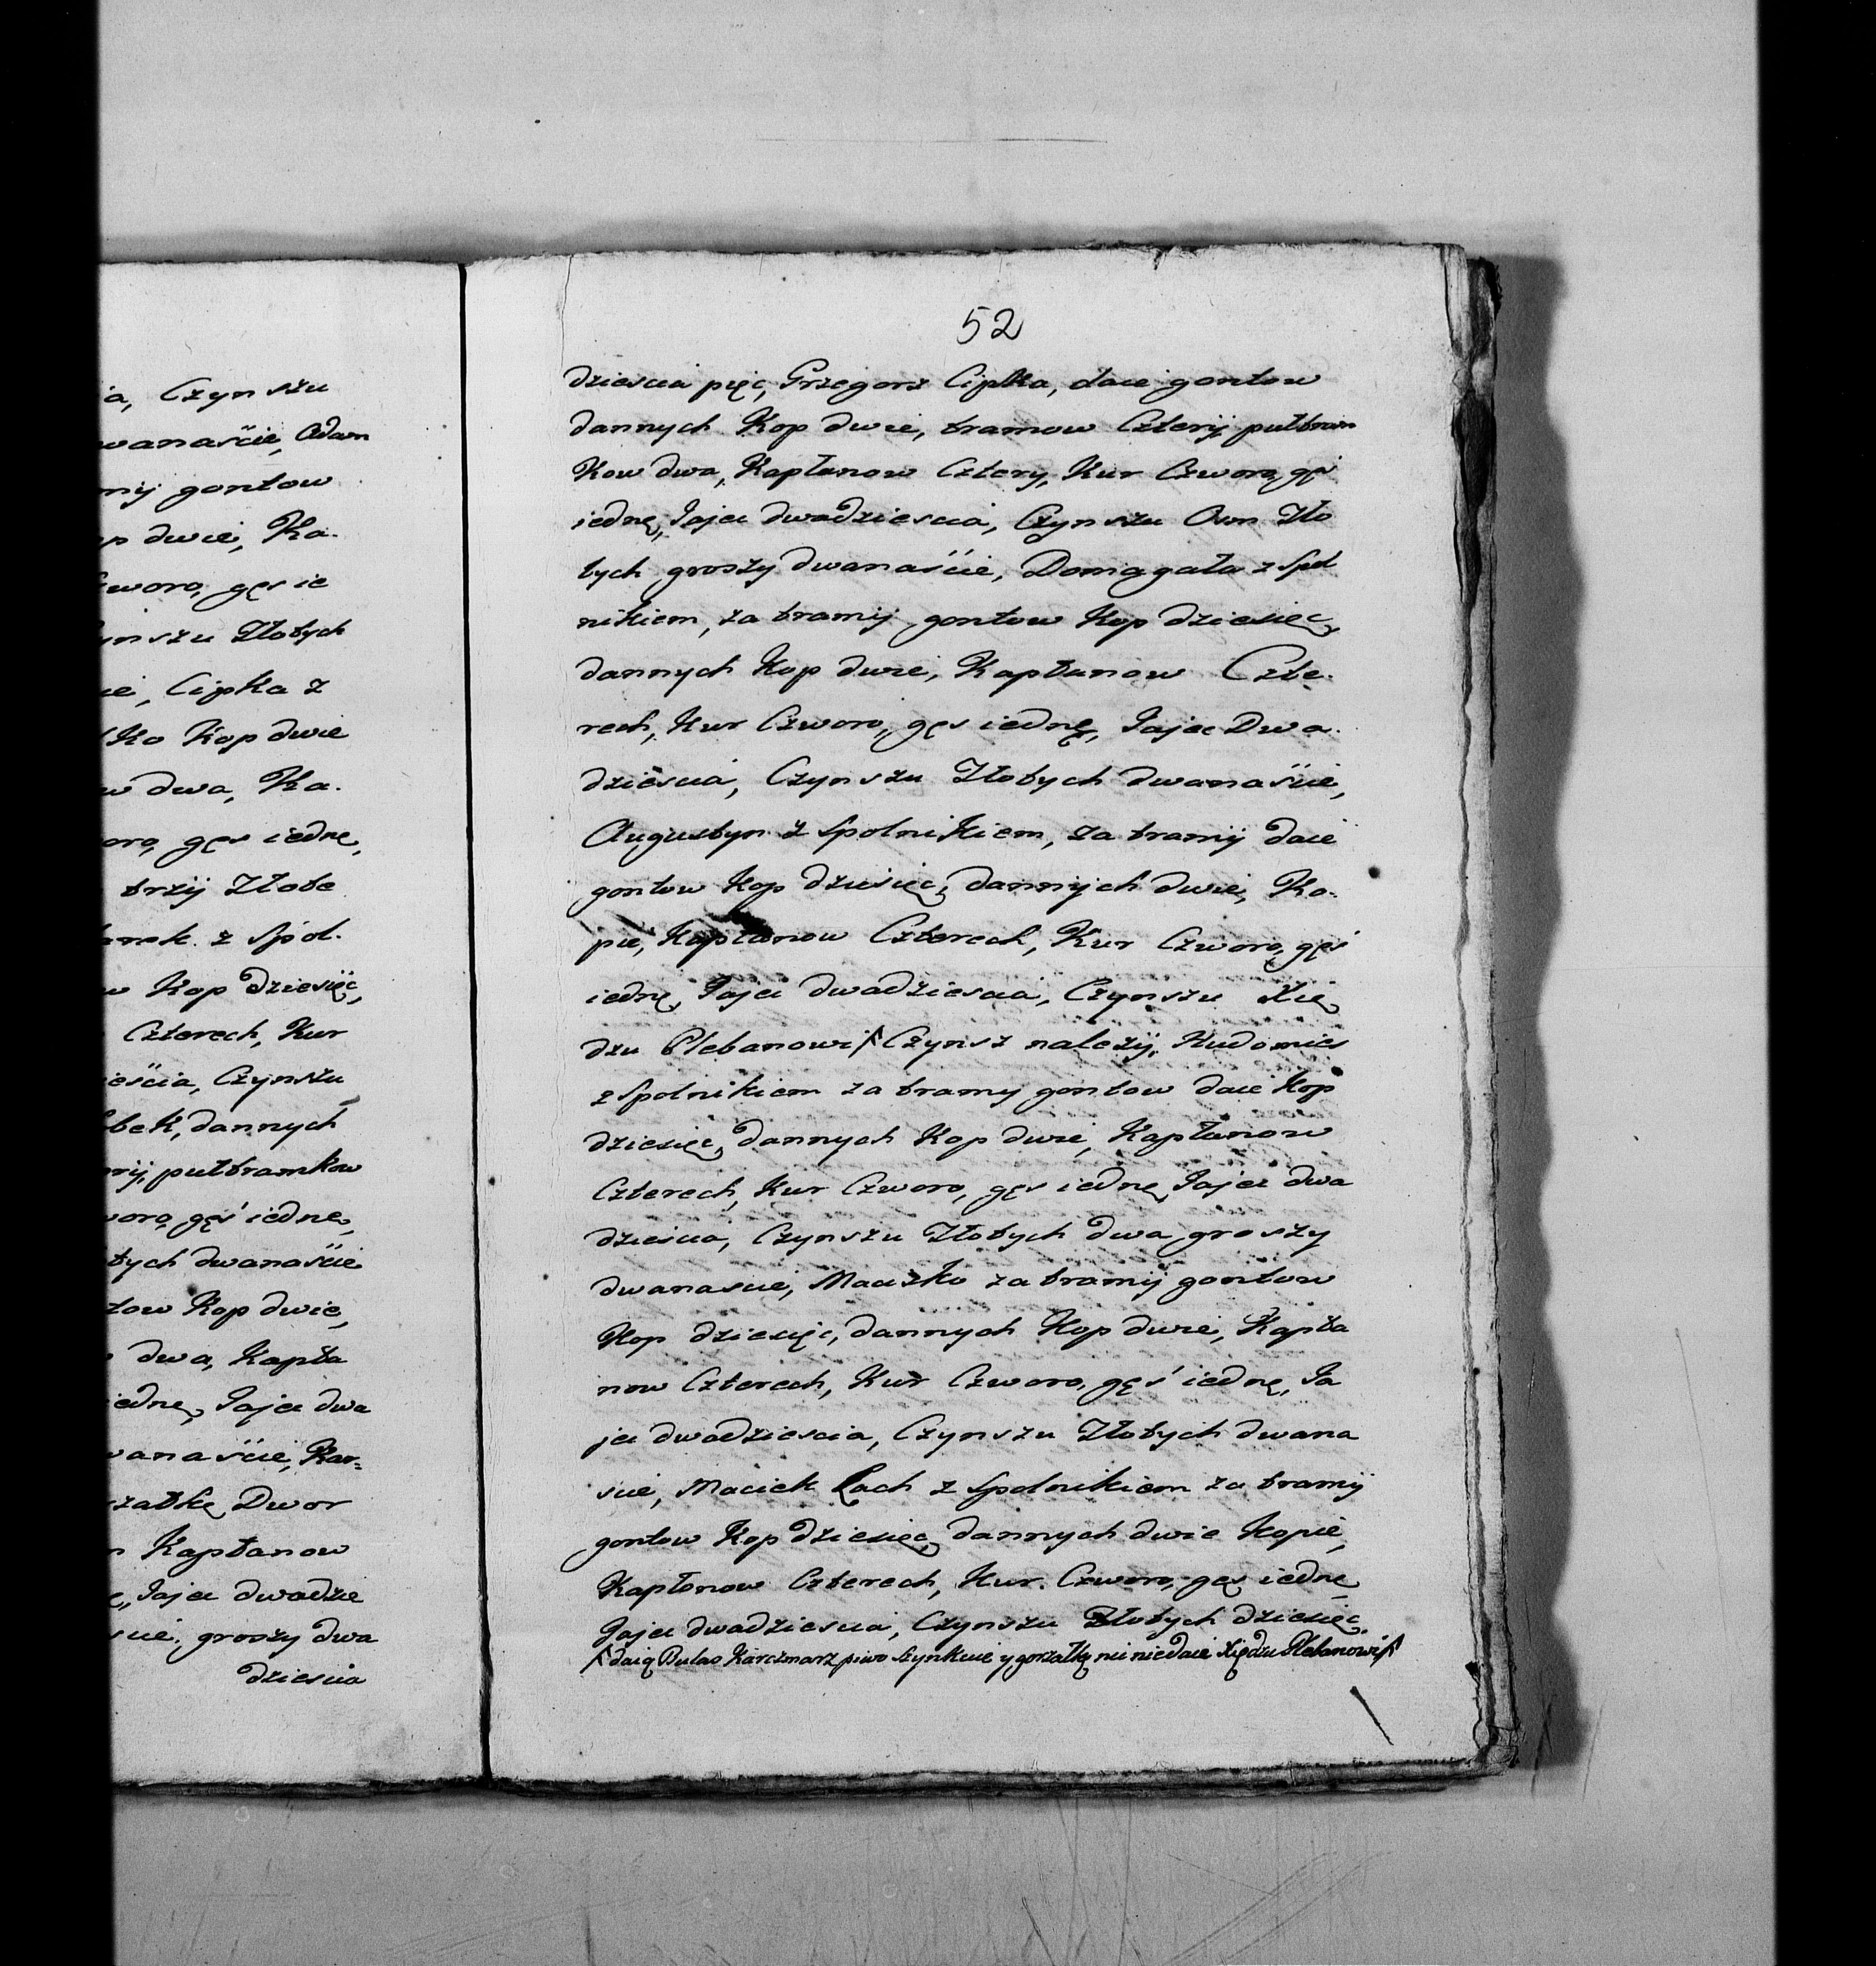 ia, Czynszu
wanaście, Adam
mij gontow
op dwie, Ka-
zworo, gęs ie
ynszu Złotych
ie, Cipka z
ko Kop dwie
w dwa, Ka-
oro, gęs iednę,
trzij Złote
z Spol-
w Kop dziesięć,
Czterech, Kur
ieścia, Czynszu
bek, dannych
rij, puttramkow
woro, gęś iednę,
tych dwanaście
tow Kop dwie,
dwa, Kapła
iednę, Jajec dwa
wanaście, Kar=
rzałkę Dwor
Kapłanow
ę, Jajec dwadzie
scie, groszy dwa
dziescia
52
dziescia pięć, Grzegorz Cipka, daie gontow
dannych Kop dwie, tramow Czterij, puttram
kow dwa, Kapłanow Cztery, Kur Czworo, gęś
iednę, Jajec dwadziescia, Czynszu Osm Zło
tych groszy dwanaście, Domagała z Spol
nikiem, za tramij gontow Kop dziesięć,
dannych Kop dwie, Kapłanow Czte-
rech, Kur Czworo, gęs iednę, Jajec Dwa-
dziescia, Czynszu Złotych dwanaście,
Augustyn z Spolnikiem, za tramij daie
gontow Kop dziesięć, dannych dwie, Ko-
pie, Kapłanow Czterech, Kur Czworo, gęś
iednę, Jajec dwadziescia, Czynszu Xię
dzu Plebanowi Czynsz należij, Kudomies
z Spolnikiem za tramy gontow daie Kop
dziesięć, dannych Kop dwie, Kapłanow
Czterech, Kur Czworo, gęs iednę, Jajec dwa
dziescia, Czynszu Złotych dwa groszy
dwanascie, Maczko za tramij gontow
Kop dziesięć, dannych Kop dwie, Kapła
now Czterech, Kur Czworo, gęś iednę, Ja
jec dwadziescia, Czynszu Złotych dwana
scie, Maciek Lach z Spolnikiem za tramij
gontow Kop dziesięć, dannych dwie Kopie,
Kapłonow Czterech, Kur Czworo, gęs iednę,
Jajec dwadziescia, Czynszu Złotych dziesięć,
daią Bulas Karczmarz piwo szynkuie y gorzałkę nic niedaie Xiędzu Plebanowi